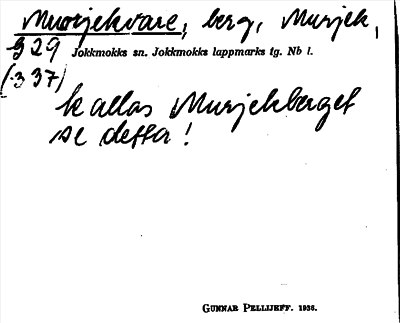 Muorjekvare, berg, Murjek,
329 Jokkmokks sn. Jokkmokks lappmarks tg. Nb l.
(337)
kallas Murjekberget
se detta!
GUNNAR PELLIJEFF. 1936.